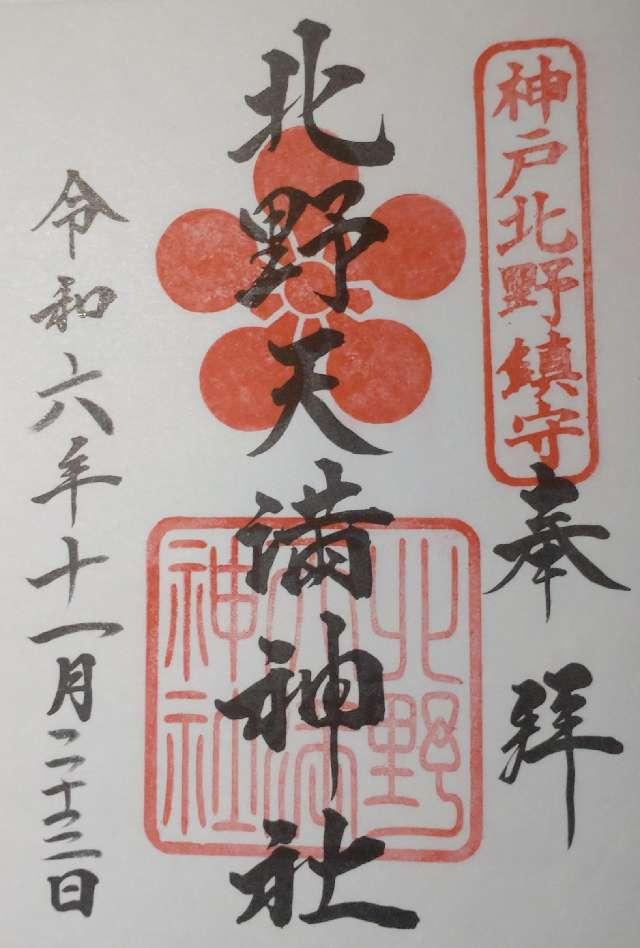 神戸北野鎮守
奉拝
北野天満神社
北野天満神社
令和六年十一月二十三日